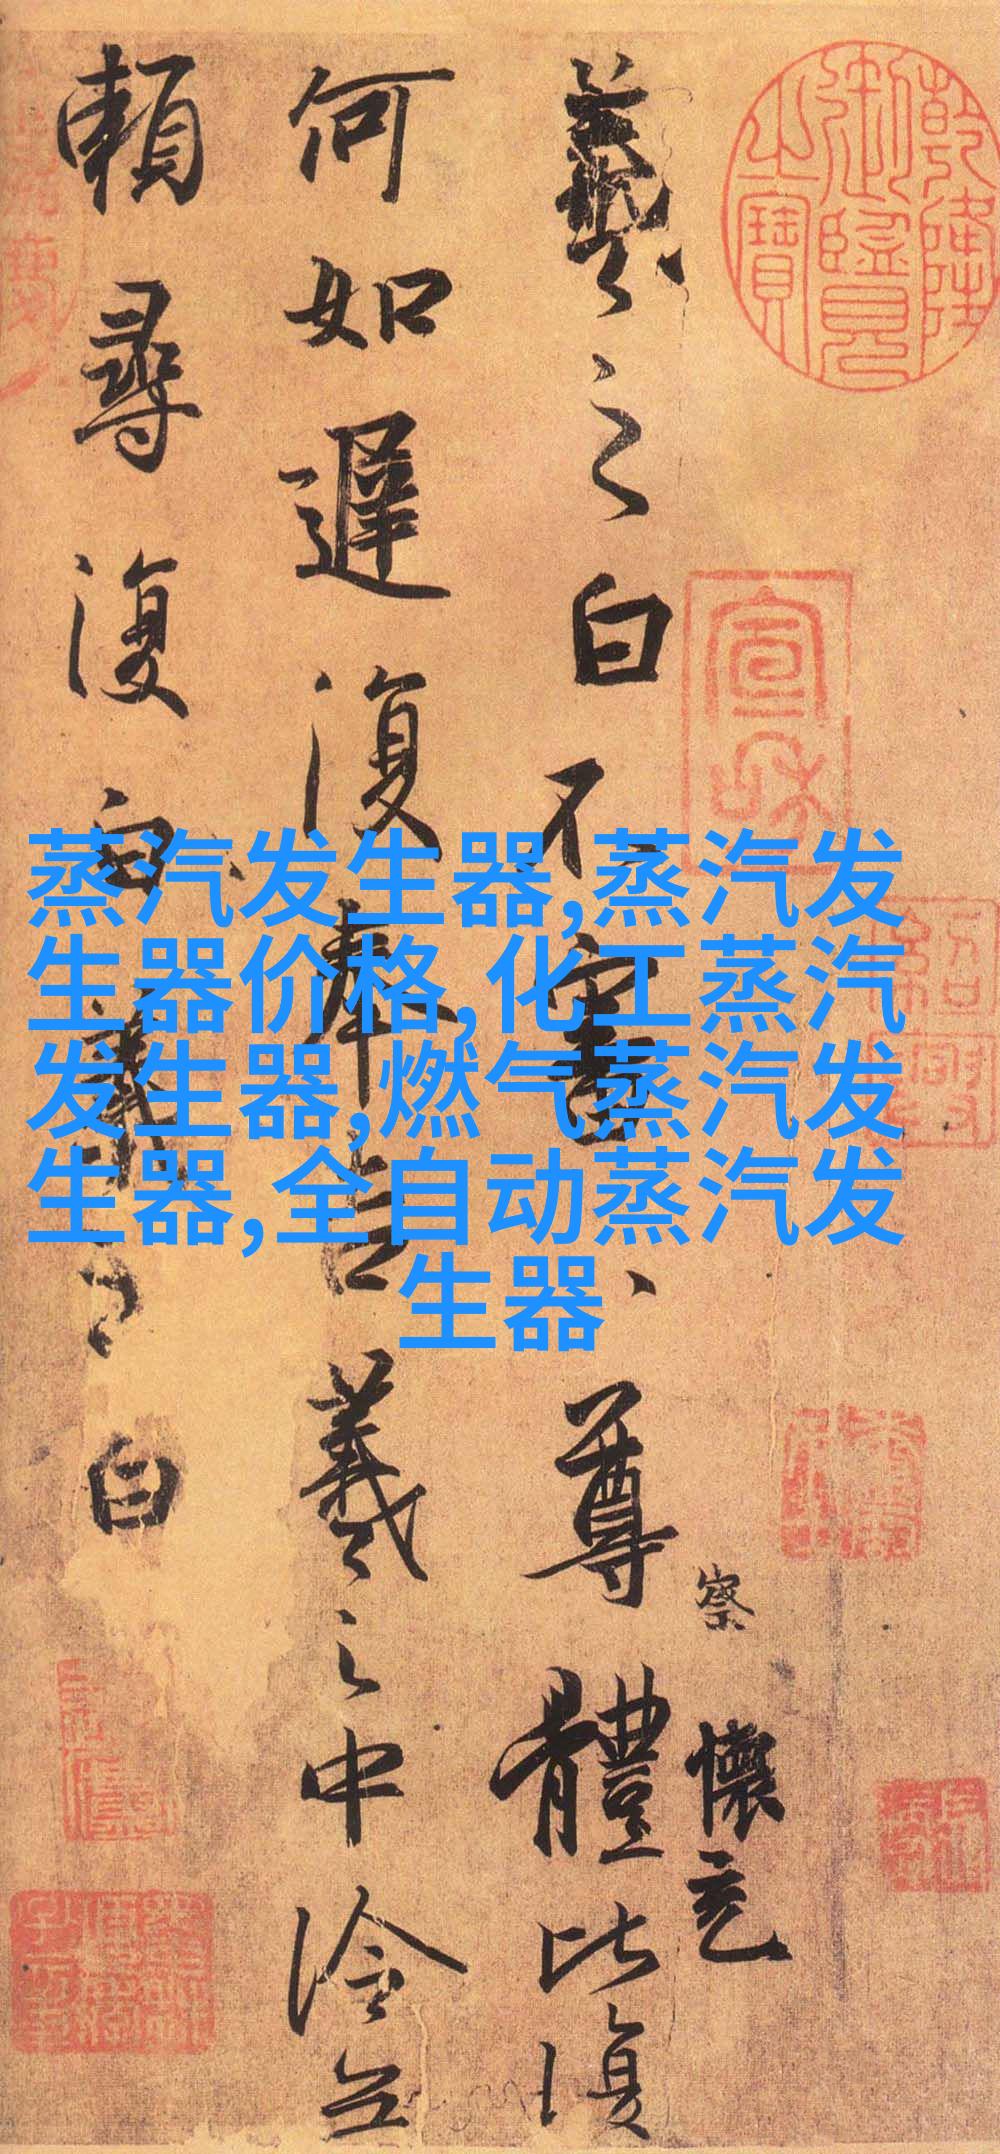 羲之白不審尊體比復
何如遲復奉告羲之中冷無
賴尋復白羲之白
察
懷充
乾隆御覽之寶
宣和
蒸汽发生器,蒸汽发
生器价格,化工蒸汽
发生器,燃气蒸汽发
生器,全自动蒸汽发
生器